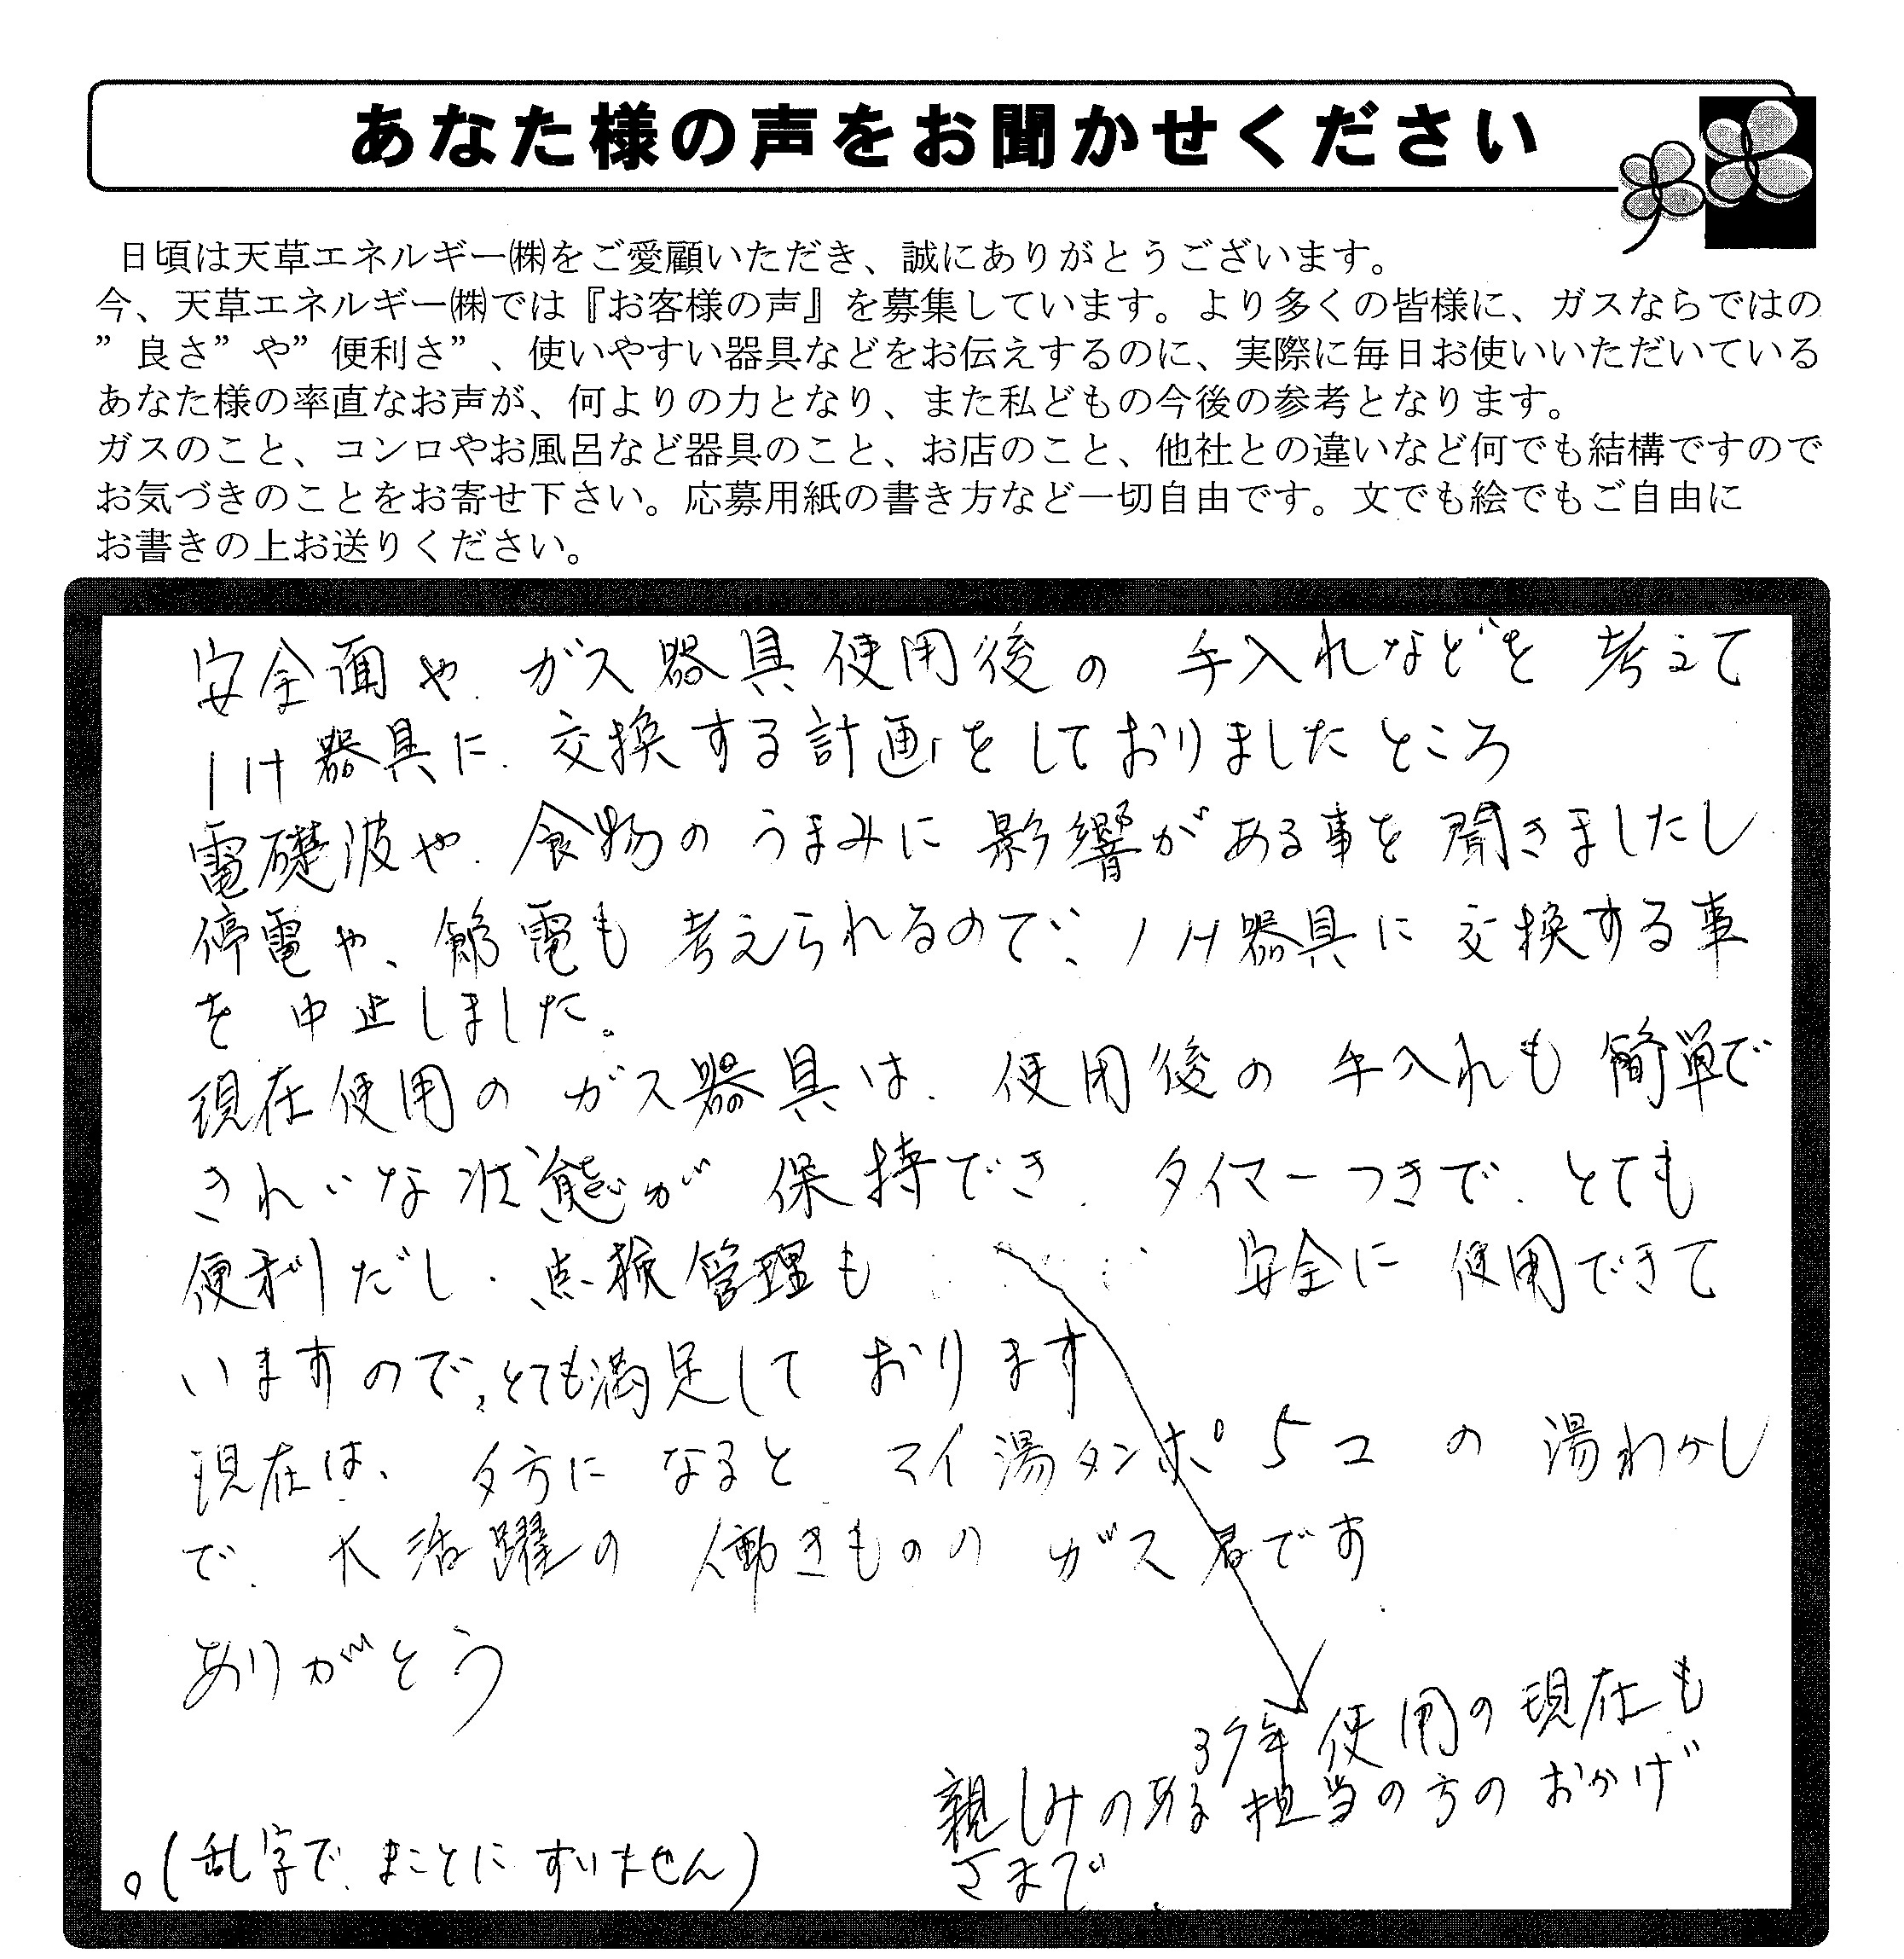 あなた様の声をお聞かせください
日頃は天草エネルギー㈱をご愛顧いただき、誠にありがとうございます。
今、天草エネルギー㈱では『お客様の声』を募集しています。より多くの皆様に、ガスならではの
”良さ”や”便利さ”、使いやすい器具などをお伝えするのに、実際に毎日お使いいただいている
あなた様の率直なお声が、何よりの力となり、また私どもの今後の参考となります。
ガスのこと、コンロやお風呂など器具のこと、お店のこと、他社との違いなど何でも結構ですので
お気づきのことをお寄せ下さい。応募用紙の書き方など一切自由です。文でも絵でもご自由に
お書きの上お送りください。
安全面や、ガス器具使用後の手入れなどを考えて
IH器具に、交換する計画をしておりましたところ
電礎波や、食物のうまみに影響がある事を聞きましたし
停電や、節電も考えられるので、IH器具に交換する事
を中止しました。
現在使用のガス器具は、使用後の手入れも簡単で
きれいな状態が保持でき、タイマーつきで、とても
便利だし、点検管理も 安全に使用できて
いますので、とても満足しております
現在は、夕方になるとマイ湯タンポ5コの湯わかし
で、大活躍の働きもののガス君です。
ありがとう
37年使用の現在も
親しみのある担当の方のおかげ
さまで、
。(乱字で、まことにすいません)